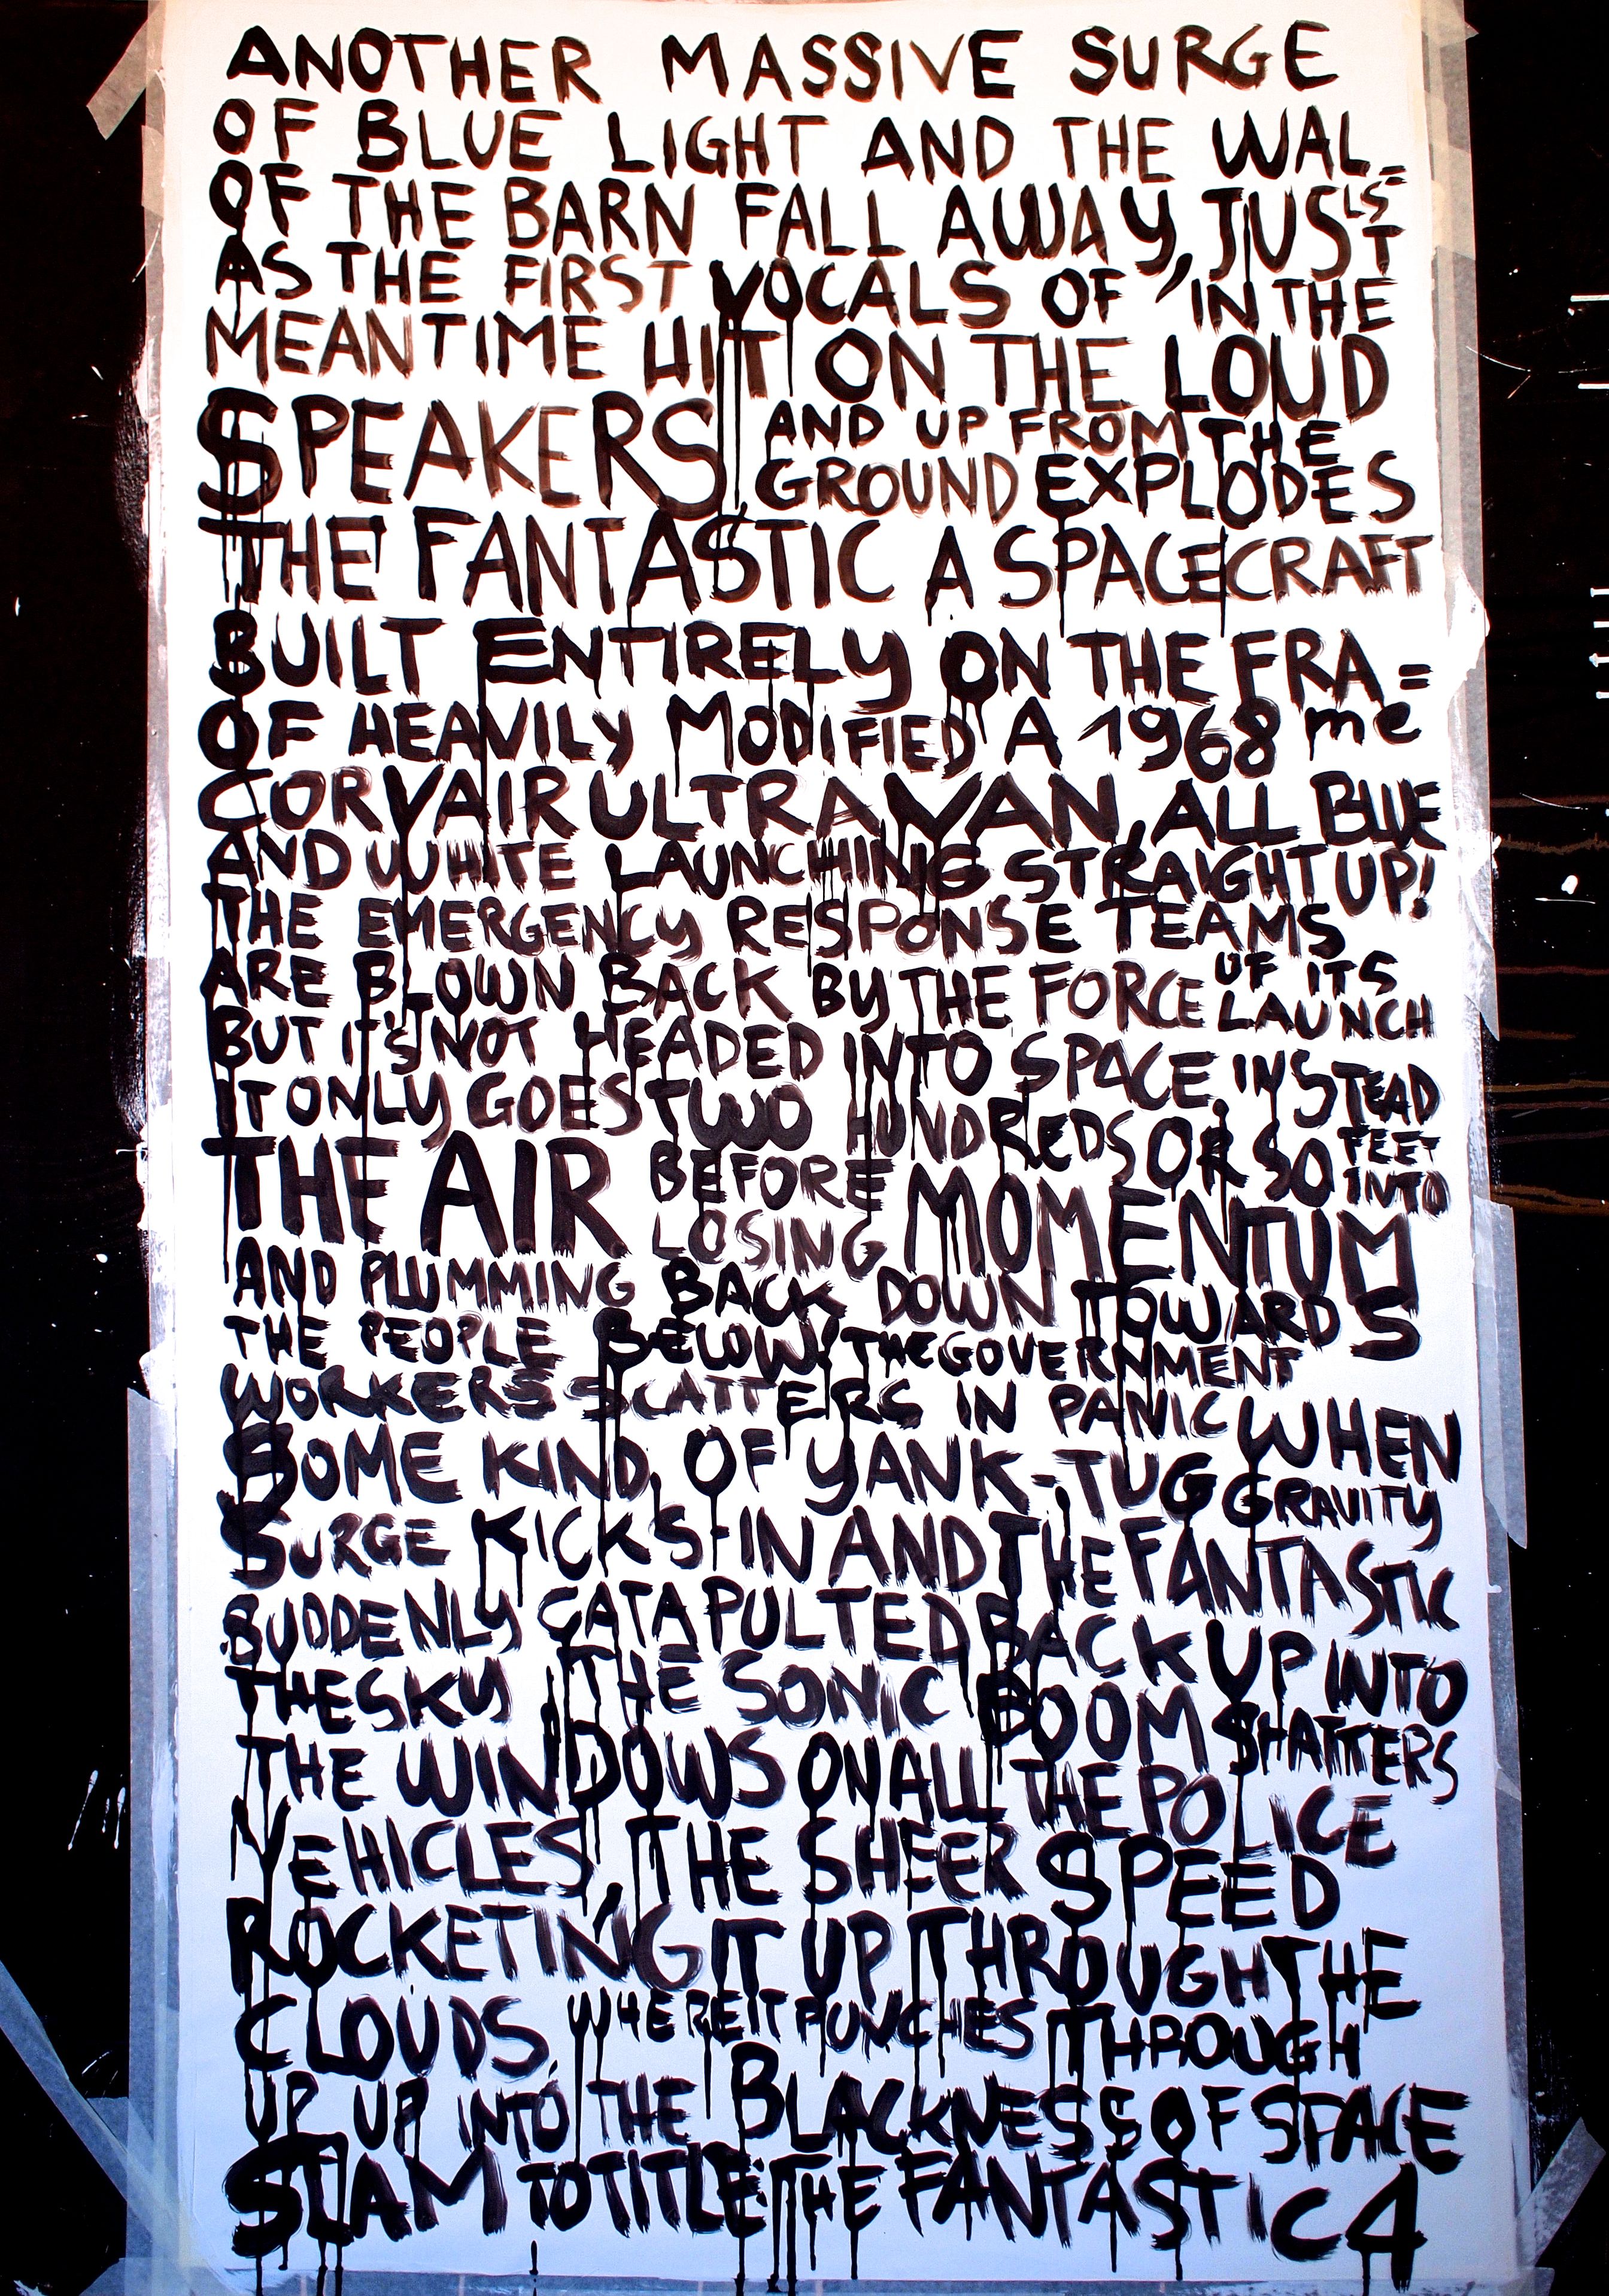 ANOTHER MASSIVE SURGE
OF BLUE LIGHT AND THE WAL=
LS
OF THE BARN FALL AWAY, JUST
AS THE FIRST VOCALS OF 'IN THE
MEANTIME HIT ON THE LOUD
SPEAKERS AND UP FROM THE
GROUND EXPLODES
THE FANTASTIC A SPACECRAFT
BUILT ENTIRELY ON THE FRA=
me
OF HEAVILY MODIFIED A 1968
CORVAIR ULTRA VAN, ALL BLUE
AND WHITE LAUNCHING STRAIGHT UP!
THE EMERGENCY RESPONSE TEAMS
ARE BLOWN BACK BY THE FORCE OF ITS
LAUNCH
BUT IT'S NOT HEADED INTO SPACE, INSTEAD
IT ONLY GOES TWO HUNDREDS OR SO FEET
INTO
THE AIR BEFORE
LOSING MOMENTUM
AND PLUMMING BACK DOWN TOWARDS
THE PEOPLE BELOW! THE GOVERNMENT
WORKERS SCATTERS IN PANIC WHEN
SOME KIND, OF YANK-TUG GRAVITY
SURGE KICKS IN AND THE FANTASTIC
SUDDENLY CATAPULTED BACK UP INTO
THE SKY THE SONIC BOOM SHATTERS
THE WINDOWS ON ALL THE POLICE
VEHICLES, THE SHEER SPEED
ROCKETING IT UP THROUGH THE
CLOUDS. WHERE IT PUNCHES THROUGH
UP UP INTO THE BLACKNESS OF SPACE
SLAM TO TITLE: THE FANTASTIC 4